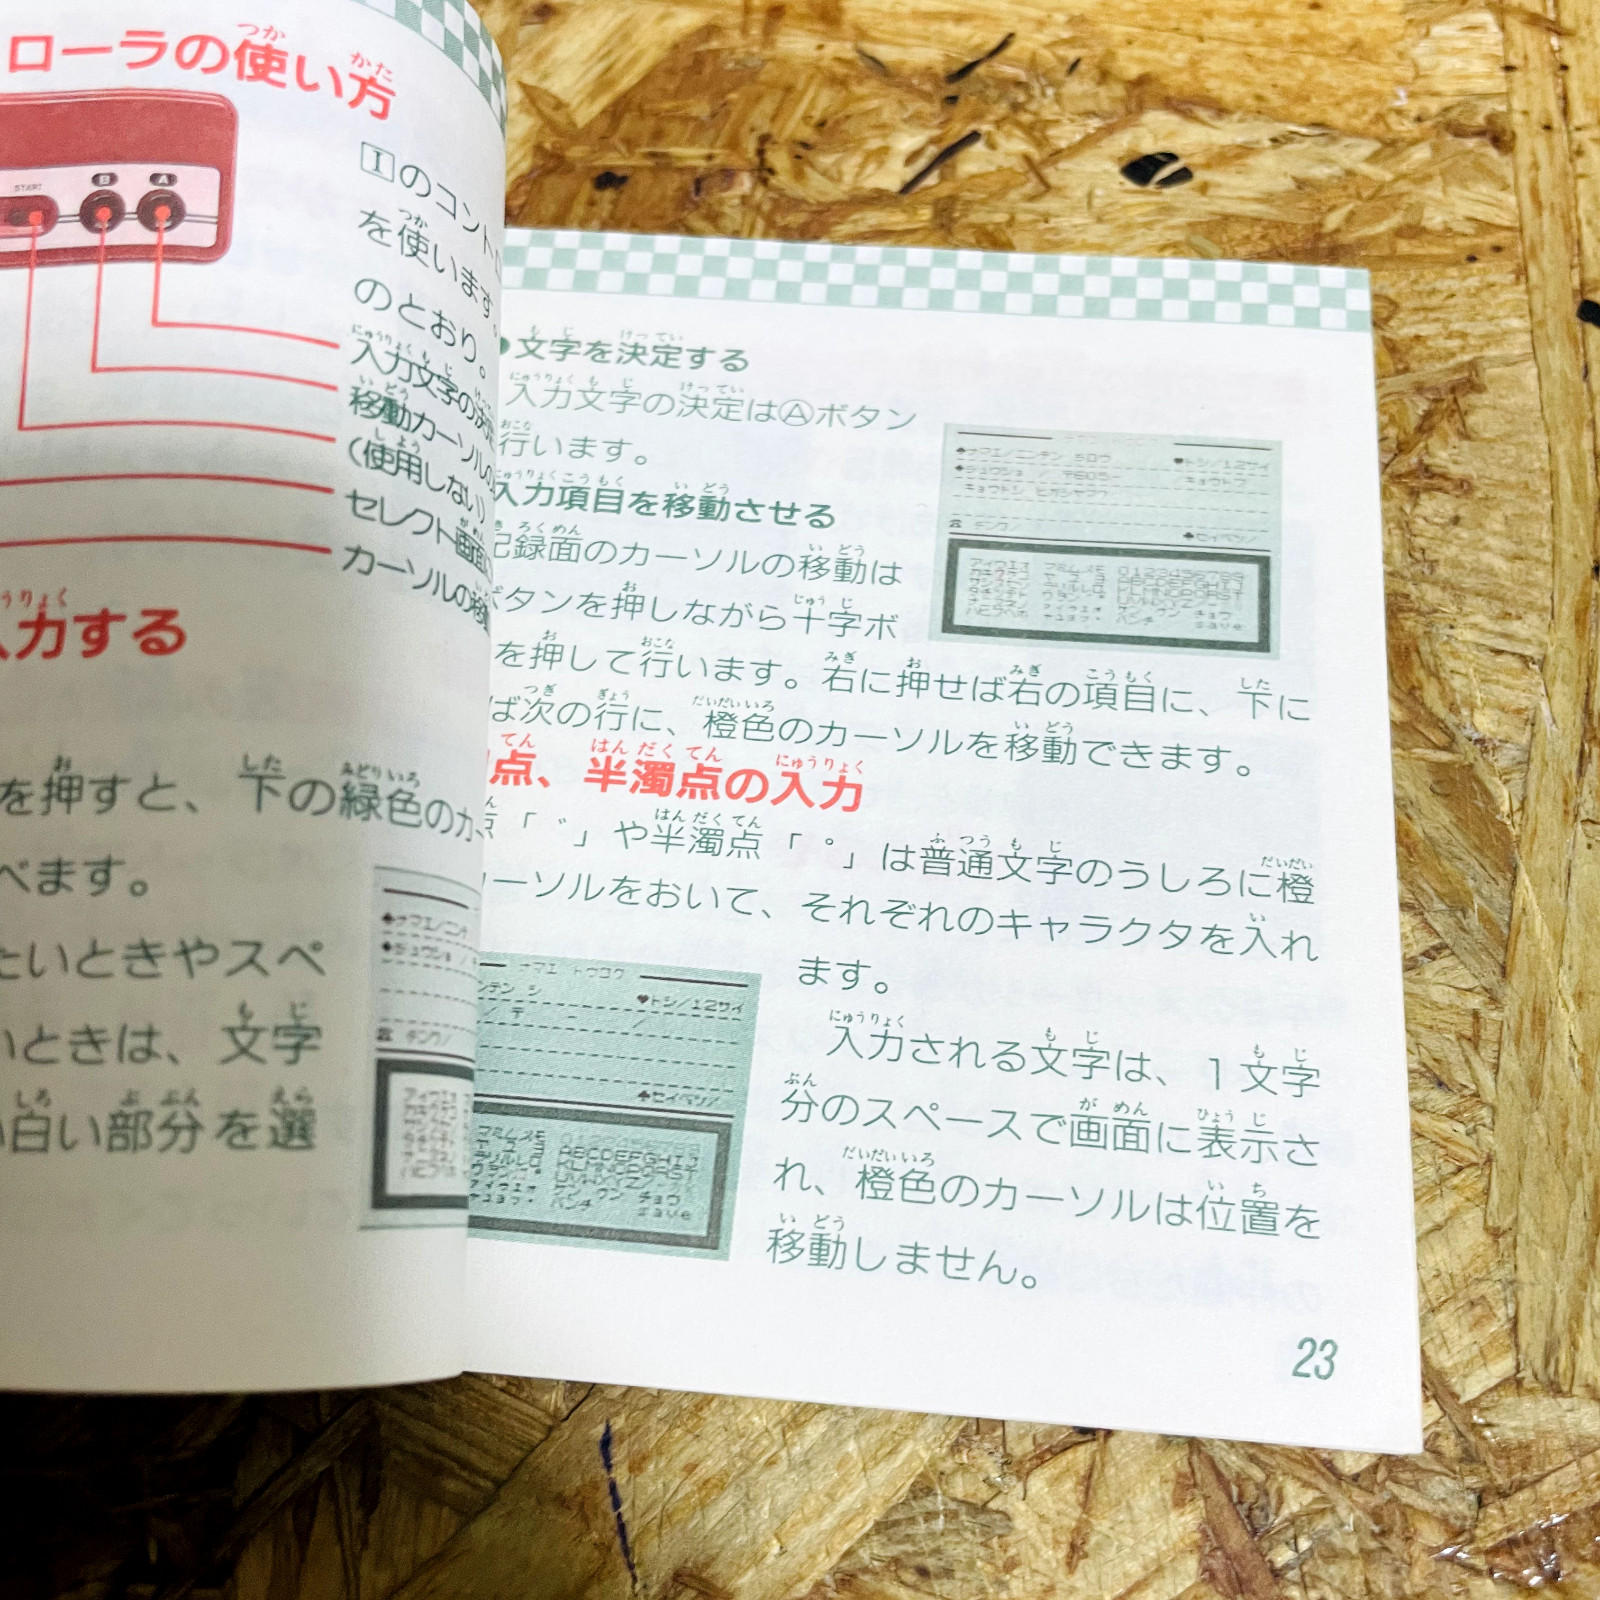 ローラの使い方
START
B
A
Iのコントロ
を使います。
のとおり。
入力文字の決定
移動カーソルの
(使用しない)
セレクト画面
カーソルの移
入力する
を押すと、下の緑色のカ
べます。
たいときやスペ
いときは、文字
白い部分を選
文字を決定する
入力文字の決定はⒶボタン
行います。
入力項目を移動させる
記録面のカーソルの移動は
ボタンを押しながら十字ボ
を押して行います。右に押せば右の項目に、下に
ば次の行に、橙色のカーソルを移動できます。
点、半濁点の入力
点「゛」や半濁点「゜」は普通文字のうしろに橙
ーソルをおいて、それぞれのキャラクタを入れ
ます。
入力される文字は、1文字
分のスペースで画面に表示さ
れ、橙色のカーソルは位置を
移動しません。
ナマエ トウロク
♥トシ/12サイ
♠セイベツ/
ABCDEFGHIJ
KLMNOPQRST
UVWXYZ
save
23